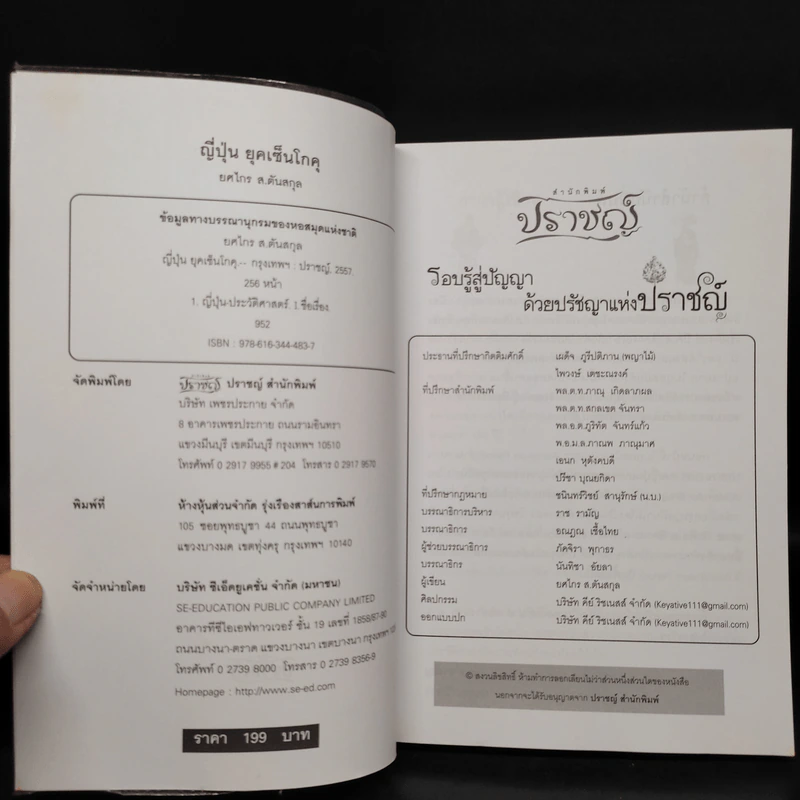 ญี่ปุ่น ยุคเซ็นโกคุ
ยศไกร ส.ตันสกุล
ข้อมูลทางบรรณานุกรมของหอสมุดแห่งชาติ
ยศไกร ส.ตันสกุล
ญี่ปุ่น ยุคเซ็นโกคุ.-- กรุงเทพฯ : ปราชญ์, 2557.
256 หน้า
1. ญี่ปุ่น-ประวัติศาสตร์. I.ชื่อเรื่อง
952
ISBN : 978-616-344-483-7
จัดพิมพ์โดย ปราชญ์ ปราชญ์ สำนักพิมพ์
บริษัท เพชรประกาย จำกัด
8 อาคารเพชรประกาย ถนนรามอินทรา
แขวงมีนบุรี เขตมีนบุรี กรุงเทพฯ 10510
โทรศัพท์ 0 2917 9955 # 204 โทรสาร 0 2917 9570
พิมพ์ที่ ห้างหุ้นส่วนจำกัด รุ่งเรืองสาส์นการพิมพ์
105 ซอยพุทธบูชา 44 ถนนพุทธบูชา
แขวงบางมด เขตทุ่งครุ กรุงเทพฯ 10140
จัดจำหน่ายโดย บริษัท ซีเอ็ดยูเคชั่น จำกัด (มหาชน)
SE-EDUCATION PUBLIC COMPANY LIMITED
อาคารทีซีไอเอฟทาวเวอร์ ชั้น 19 เลขที่ 1858/87-90
ถนนบางนา-ตราด แขวงบางนา เขตบางนา กรุงเทพฯ
โทรศัพท์ 0 2739 8000 โทรสาร 0 2739 8356-9
Homepage : http://www.se-ed.com
ราคา 199 บาท
สำนักพิมพ์
ปราชญ์
รอบรู้สู่ปัญญา
ด้วยปรัชญาแห่งปราชญ์
ประธานที่ปรึกษากิตติมศักดิ์ เผด็จ ภูรีปติภาน (พญาไม้)
ไพวงษ์ เตชะณรงค์
ที่ปรึกษาสำนักพิมพ์ พล.ต.ท.ภาณุ เกิดลาภผล
พล.ต.ท.สกลเขต จันทรา
พล.อ.ต.ภูริทัต จันทร์แก้ว
พ.อ.ม.ล.ภาณพ ภาณุมาศ
เอนก หุตังคบดี
ปรีชา บุณยกิดา
ที่ปรึกษากฎหมาย ชนินทร์วิชย์ สานุรักษ์ (น.บ.)
บรรณาธิการบริหาร ราช รามัญ
บรรณาธิการ อณฎณ เชื้อไทย
ผู้ช่วยบรรณาธิการ ภัคจิรา พุกาธร
บรรณาธิกร นันทิชา อัยลา
ผู้เขียน ยศไกร ส.ตันสกุล
ศิลปกรรม บริษัท คีย์ ริชเนสส์ จำกัด (Keyative111@gmail.com)
ออกแบบปก บริษัท คีย์ ริชเนสส์ จำกัด (Keyative111@gmail.com)
© สงวนลิขสิทธิ์ ห้ามทำการลอกเลียนไม่ว่าส่วนหนึ่งส่วนใดของหนังสือ
นอกจากจะได้รับอนุญาตจาก ปราชญ์ สำนักพิมพ์